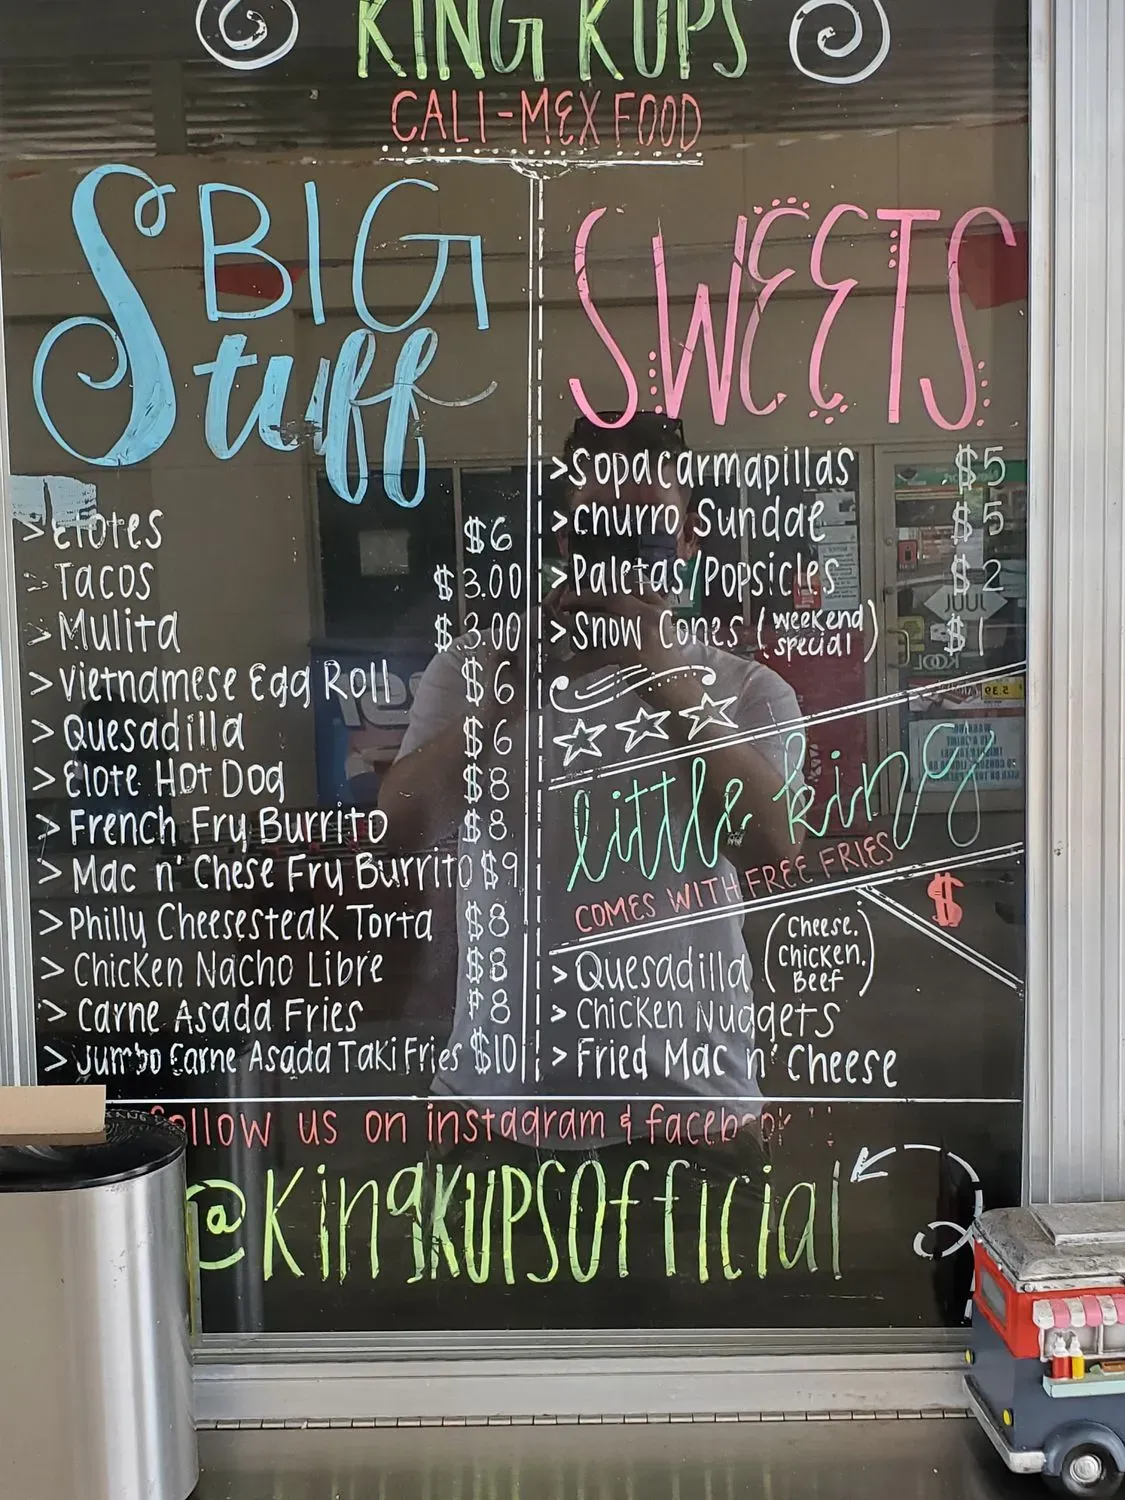 KING KUPS
CALI-MEX FOOD
BIG
Stuff
> Elotes $6
> Tacos $3.00
> Mulita $3.00
> Vietnamese Egg Roll $6
> Quesadilla $6
> Elote Hot Dog $8
> French Fry Burrito $8
> Mac n' Chese Fry Burrito $9
> Philly Cheesesteak Torta $8
> Chicken Nacho Libre $8
> Carne Asada Fries $8
> Jumbo Carne Asada Taki Fries $10
SWEETS
> Sopacarmapillas $5
> Churro Sundae $5
> Paletas/Popsicles $2
> Snow Cones (weekend special) $1
little king
COMES WITH FREE FRIES
$
> Quesadilla (Cheese. Chicken. Beef)
> Chicken Nuggets
> Fried Mac n' Cheese
follow us on instagram & facebook
@KingKUPSOfficial